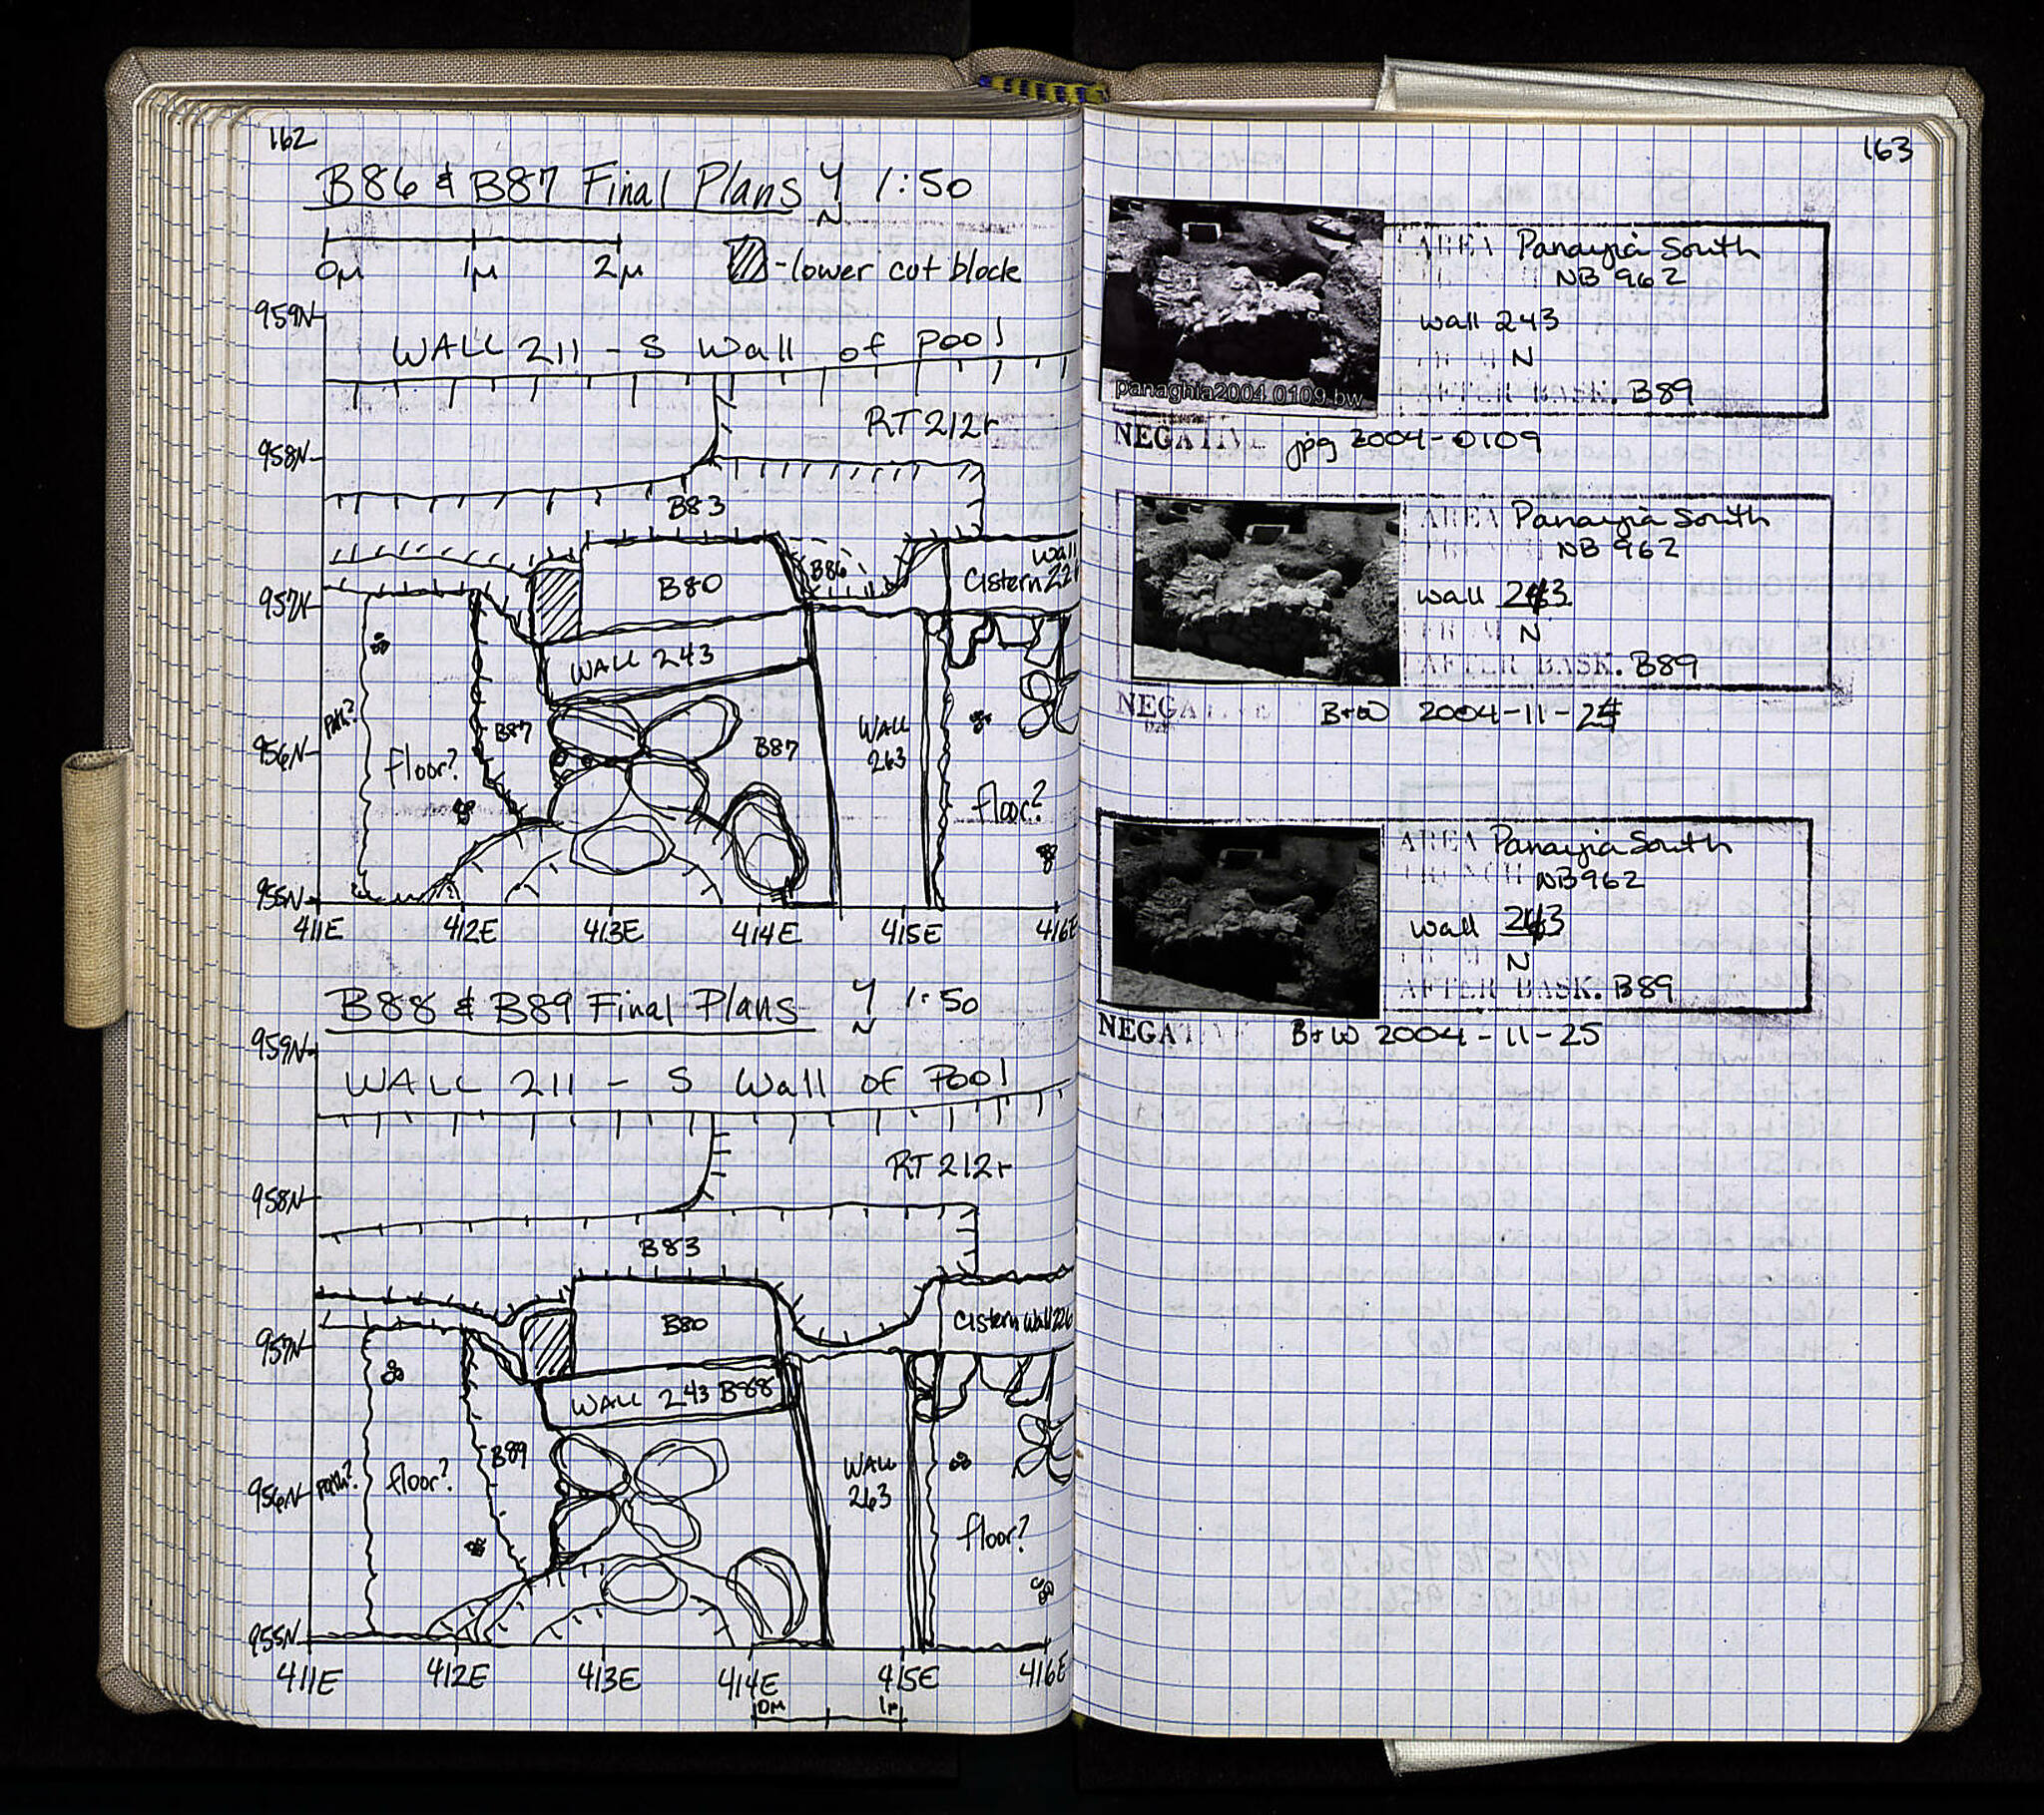 162
B86 & B87 Final Plans N 1:50
0м 1м 2м
-lower cut block
959N
WALL 211 - S Wall of Pool
RT 212r
958N
B83
B86
Wall
Cistern 226
957N
B80
WALL 243
Path?
floor?
B87
B87
WALL
263
956N
floor?
955N
411E 412E 413E 414E 415E 416E
B88 & B89 Final Plans N 1:50
959N
WALL 211 - S Wall of Pool
RT 212r
958N
B83
B80
Cistern Wall 226
957N
WALL 243 B88
B89
WALL
263
956N
Path?
floor?
floor?
955N
411E 412E 413E 414E 415E 416E
0м 1м
163
AREA Panayia South
NB 962
wall 243
N
AFTER BASK. B89
panaghia2004 0109.bw
NEGATIVE jpg 2004-0109
AREA Panayia South
NB 962
wall 243
FROM N
AFTER BASK. B89
NEGATIVE B+W 2004-11-24
AREA Panayia South
TRENCH NB 962
wall 243
N
AFTER BASK. B89
NEGATIVE B+W 2004-11-25